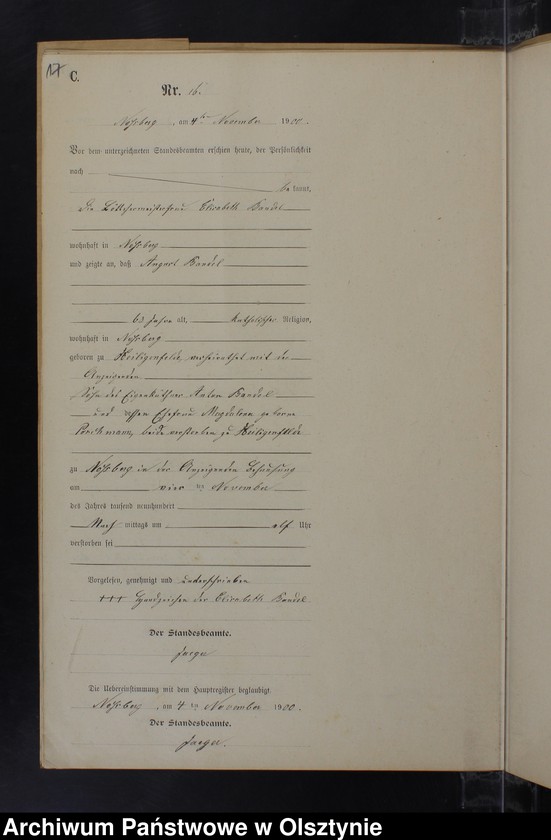 17
C.
Nr. 16.
Noßberg, am 4ten November 1900.
Vor dem unterzeichneten Standesbeamten erschien heute, der Persönlichkeit
nach
bekannt,
die Böttchermeisterfrau Elisabeth Bandel
wohnhaft in Noßberg
und zeigte an, daß August Bandel
63 Jahre alt, katholischer Religion,
wohnhaft in Noßberg
geboren zu Heiligenfelde, verheirathet mit der
Anzeigenden
Sohn des Eigenkäthner Anton Bandel
und dessen Ehefrau Magdalena geborne
beide verstorben zu Heiligenfelde
zu Noßberg in der Anzeigenden Behausung
am vier ten November
des Jahres tausend neunhundert
Nach mittags um elf Uhr
verstorben sei
Vorgelesen, genehmigt und unterschrieben
+++ Handzeichen der Elisabeth Bandel
Der Standesbeamte.
Jaeger
Die Uebereinstimmung mit dem Hauptregister beglaubigt
Noßberg, am 4 ten November 1900.
Der Standesbeamte.
Jaeger.
Archiwum Państwowe w Olsztynie